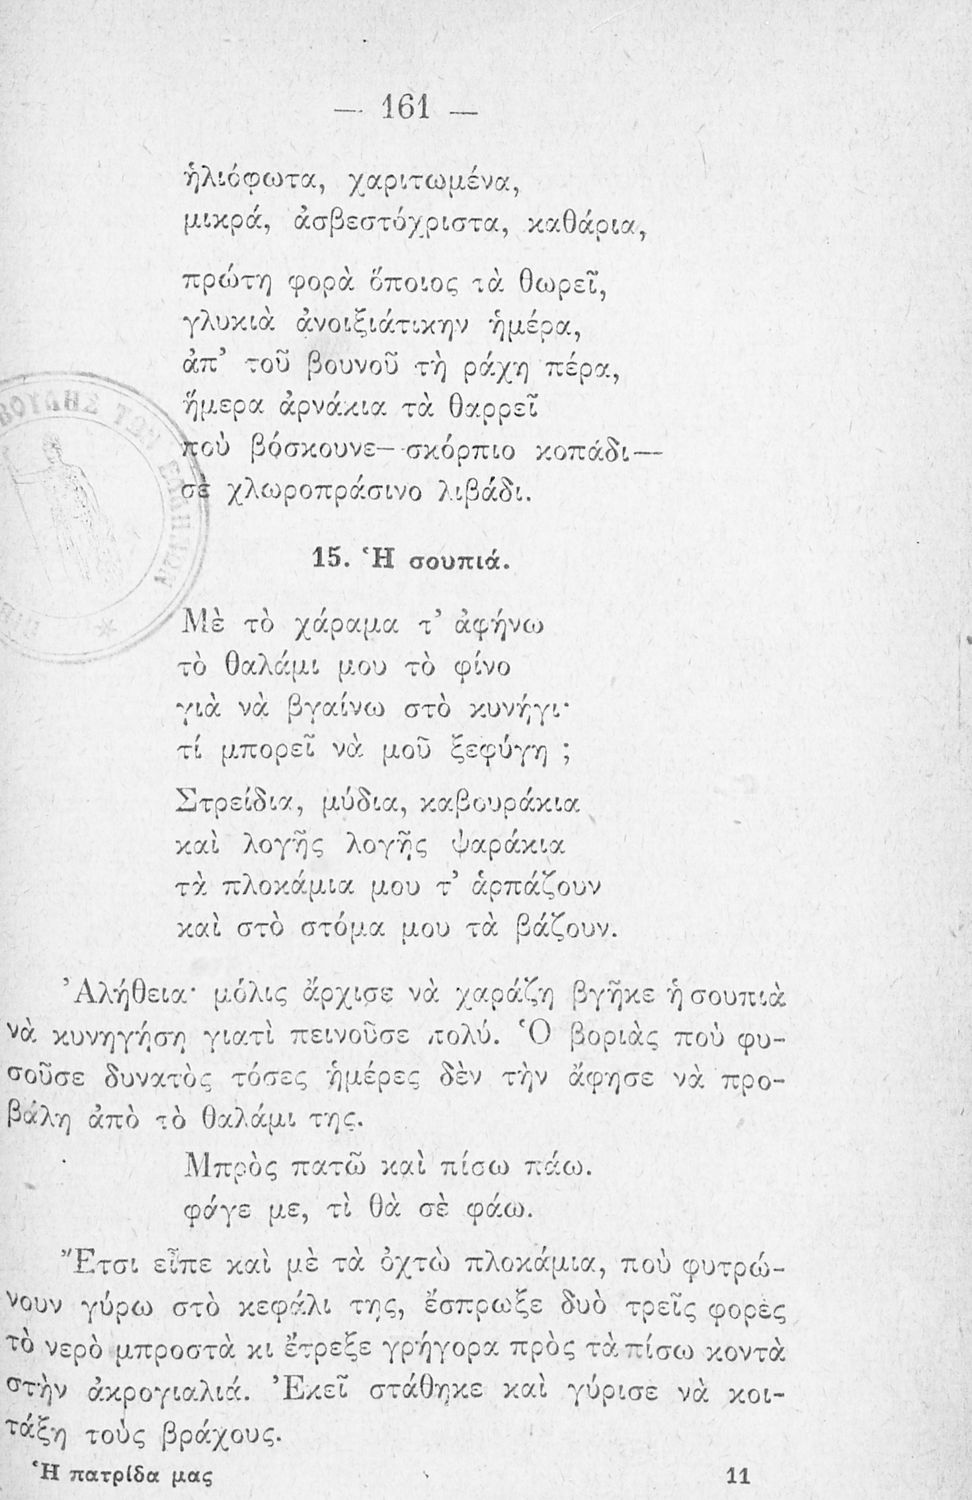 — 161 —
ἡλιόφωτα, χαριτωμένα,
μικρά, ἀσβεστόχριστα, καθάρια,
πρώτη φορὰ ὅποιος τὰ θωρεῖ,
γλυκιὰ ἀνοιξιάτικην ἡμέρα,
ἀπ’ τοῦ βουνοῦ τὴ ράχη πέρα,
ἥμερα ἀρνάκια τὰ θαρρεῖ
ποὺ βόσκουνε—σκόρπιο κοπάδι—
σὲ χλωροπράσινο λιβάδι.
ΒΟΥΛΗΣ ΤΩΝ ΕΛΛΗΝΩΝ
15. Ἡ σουπιά.
Μὲ τὸ χάραμα τ’ ἀφήνω
τὸ θαλάμι μου τὸ φίνο
γιὰ νὰ βγαίνω στὸ κυνήγι·
τί μπορεῖ νὰ μοῦ ξεφύγη ;
Στρείδια, μύδια, καβουράκια
καὶ λογῆς λογῆς ψαράκια
τὰ πλοκάμια μου τ’ ἁρπάζουν
καὶ στὸ στόμα μου τὰ βάζουν.
Ἀλήθεια· μόλις ἄρχισε νὰ χαράζη βγῆκε ἡ σουπιὰ
νὰ κυνηγήση γιατὶ πεινοῦσε πολύ. Ὁ βοριὰς ποὺ φυ-
σοῦσε δυνατὸς τόσες ἡμέρες δὲν τὴν ἄφησε νὰ προ-
βάλη ἀπὸ τὸ θαλάμι της.
Μπρὸς πατῶ καὶ πίσω πάω.
φάγε με, τὶ θὰ σὲ φάω.
Ἔτσι εἶπε καὶ μὲ τὰ ὀχτὼ πλοκάμια, ποὺ φυτρώ-
νουν γύρω στὸ κεφάλι της, ἔσπρωξε δυὸ τρεῖς φορὲς
τὸ νερὸ μπροστὰ κι ἔτρεξε γρήγορα πρὸς τὰ πίσω κοντὰ
στὴν ἀκρογιαλιά. Ἐκεῖ στάθηκε καὶ γύρισε νὰ κοι-
τάξη τοὺς βράχους.
Ἡ πατρίδα μας 11